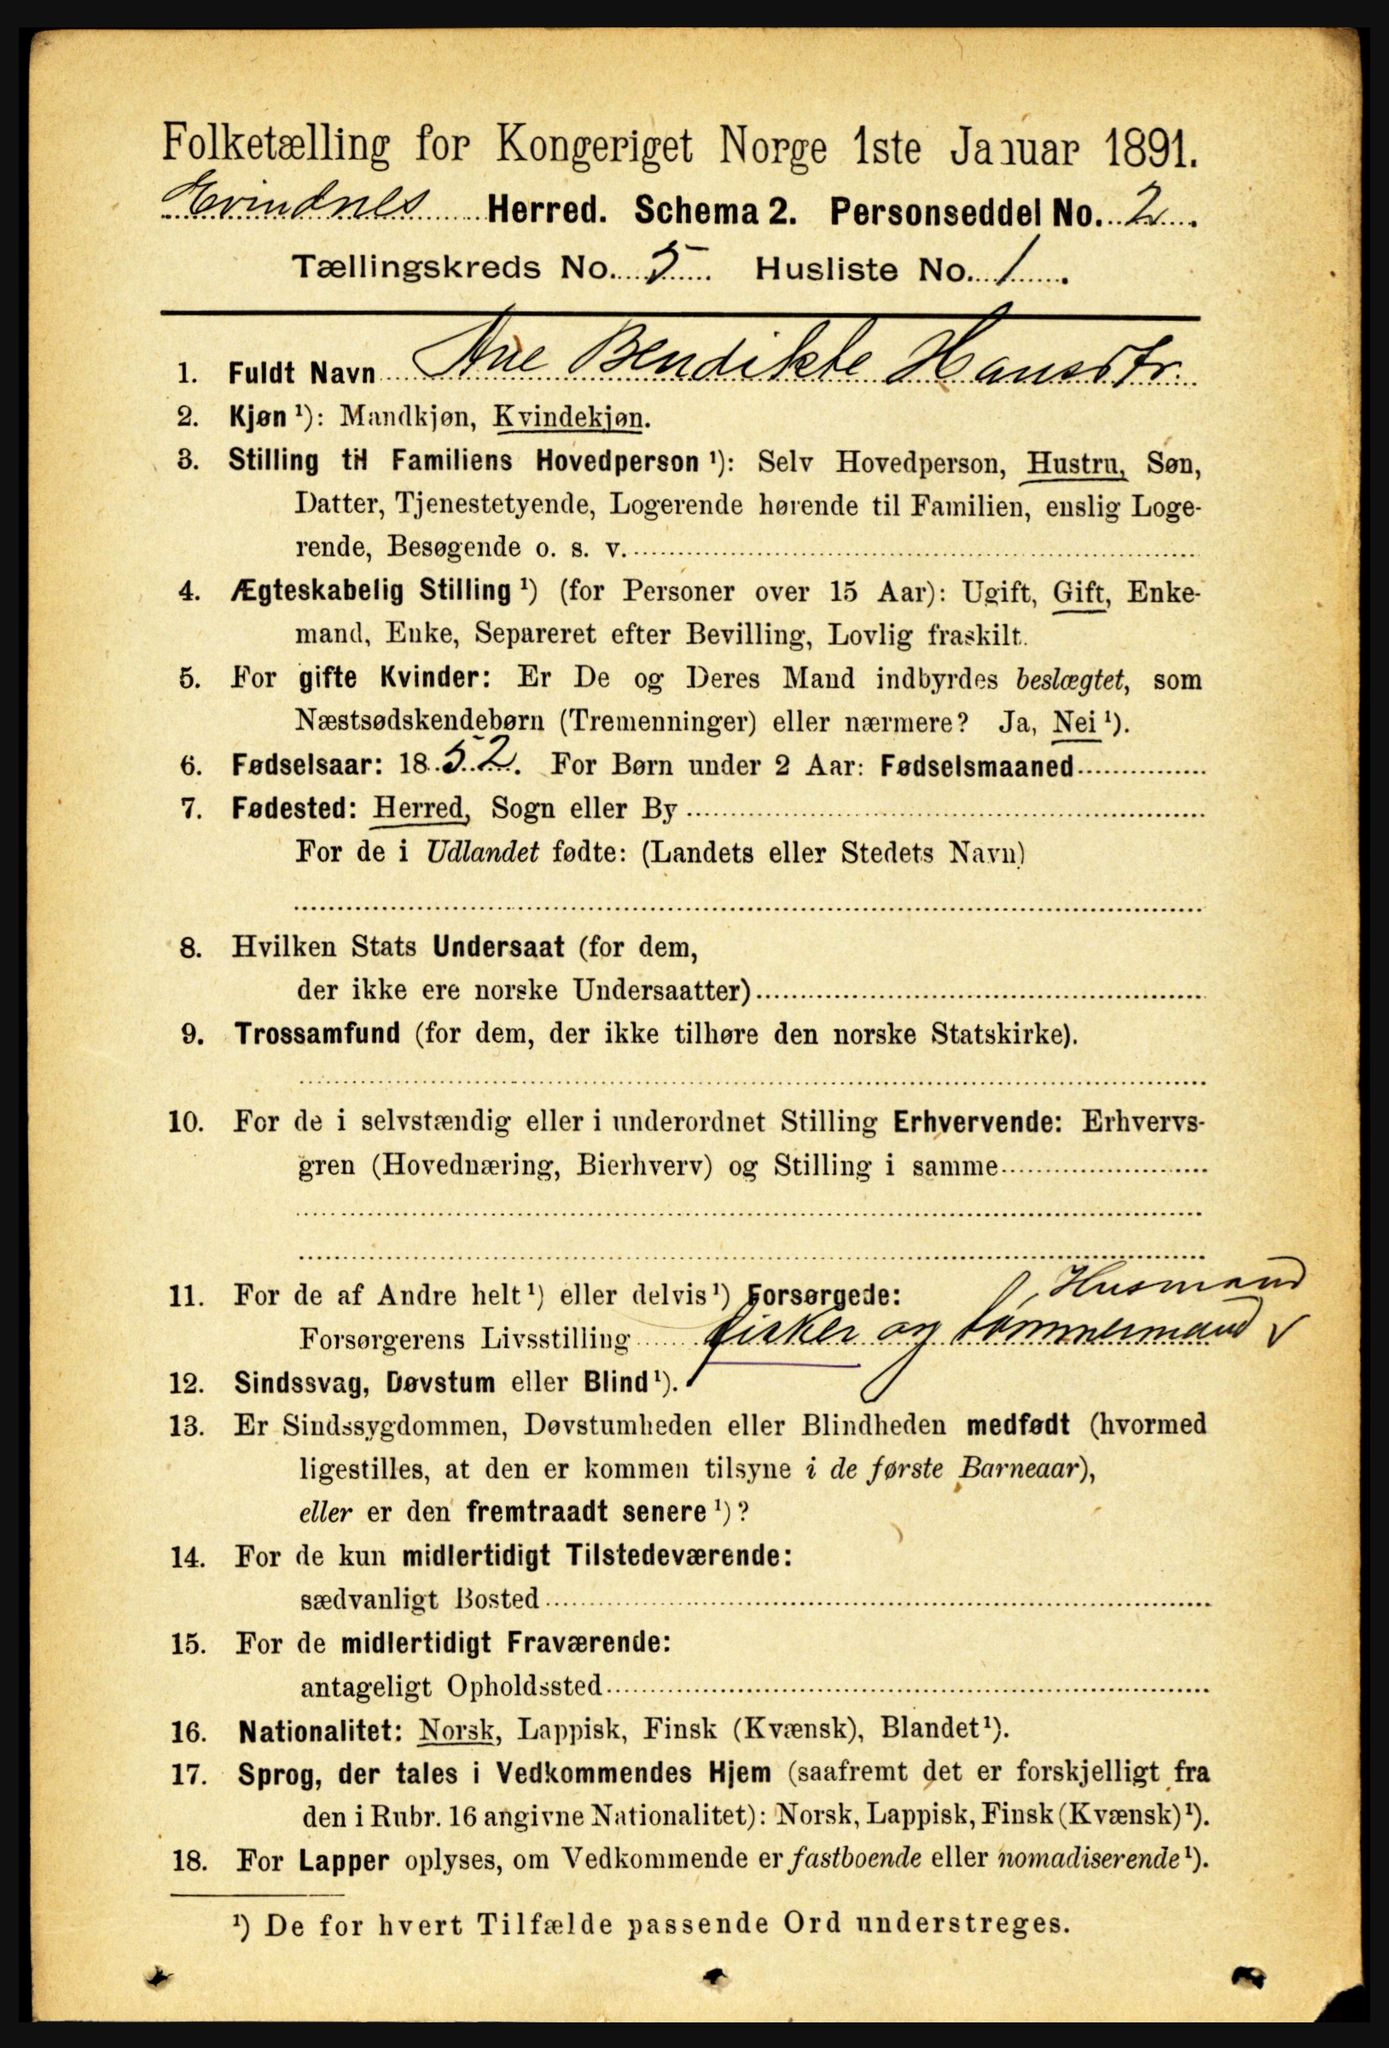 Folketælling for Kongeriget Norge 1ste Januar 1891.
Evindnes Herred. Schema 2. Personseddel No. 2.
Tællingskreds No. 5. Husliste No. 1.
1. Fuldt Navn Ane Bendikte Hansdtr.
2. Kjøn ¹): Mandkjøn, Kvindekjøn.
3. Stilling til Familiens Hovedperson ¹): Selv Hovedperson, Hustru, Søn,
Datter, Tjenestetyende, Logerende hørende til Familien, enslig Loge-
rende, Besøgende o. s. v.
4. Ægteskabelig Stilling ¹) (for Personer over 15 Aar): Ugift, Gift, Enke-
mand, Enke, Separeret efter Bevilling, Lovlig fraskilt.
5. For gifte Kvinder: Er De og Deres Mand indbyrdes beslægtet, som
Næstsødskendebørn (Tremenninger) eller nærmere? Ja, Nei ¹).
6. Fødselsaar: 1852. For Børn under 2 Aar: Fødselsmaaned
7. Fødested: Herred, Sogn eller By
For de i Udlandet fødte: (Landets eller Stedets Navn)
8. Hvilken Stats Undersaat (for dem,
der ikke ere norske Undersaatter)
9. Trossamfund (for dem, der ikke tilhøre den norske Statskirke).
10. For de i selvstændig eller i underordnet Stilling Erhvervende: Erhvervs-
gren (Hovednæring, Bierhverv) og Stilling i samme
11. For de af Andre helt ¹) eller delvis ¹) Forsørgede: , Husmand
Forsørgerens Livsstilling fisker og tømmermand
12. Sindssvag, Døvstum eller Blind ¹).
13. Er Sindssygdommen, Døvstumheden eller Blindheden medfødt (hvormed
ligestilles, at den er kommen tilsyne i de første Barneaar),
eller er den fremtraadt senere ¹)?
14. For de kun midlertidigt Tilstedeværende:
sædvanligt Bosted
15. For de midlertidigt Fraværende:
antageligt Opholdssted
16. Nationalitet: Norsk, Lappisk, Finsk (Kvænsk), Blandet ¹).
17. Sprog, der tales i Vedkommendes Hjem (saafremt det er forskjelligt fra
den i Rubr. 16 angivne Nationalitet): Norsk, Lappisk, Finsk (Kvænsk) ¹).
18. For Lapper oplyses, om Vedkommende er fastboende eller nomadiserende ¹).
¹) De for hvert Tilfælde passende Ord understreges.